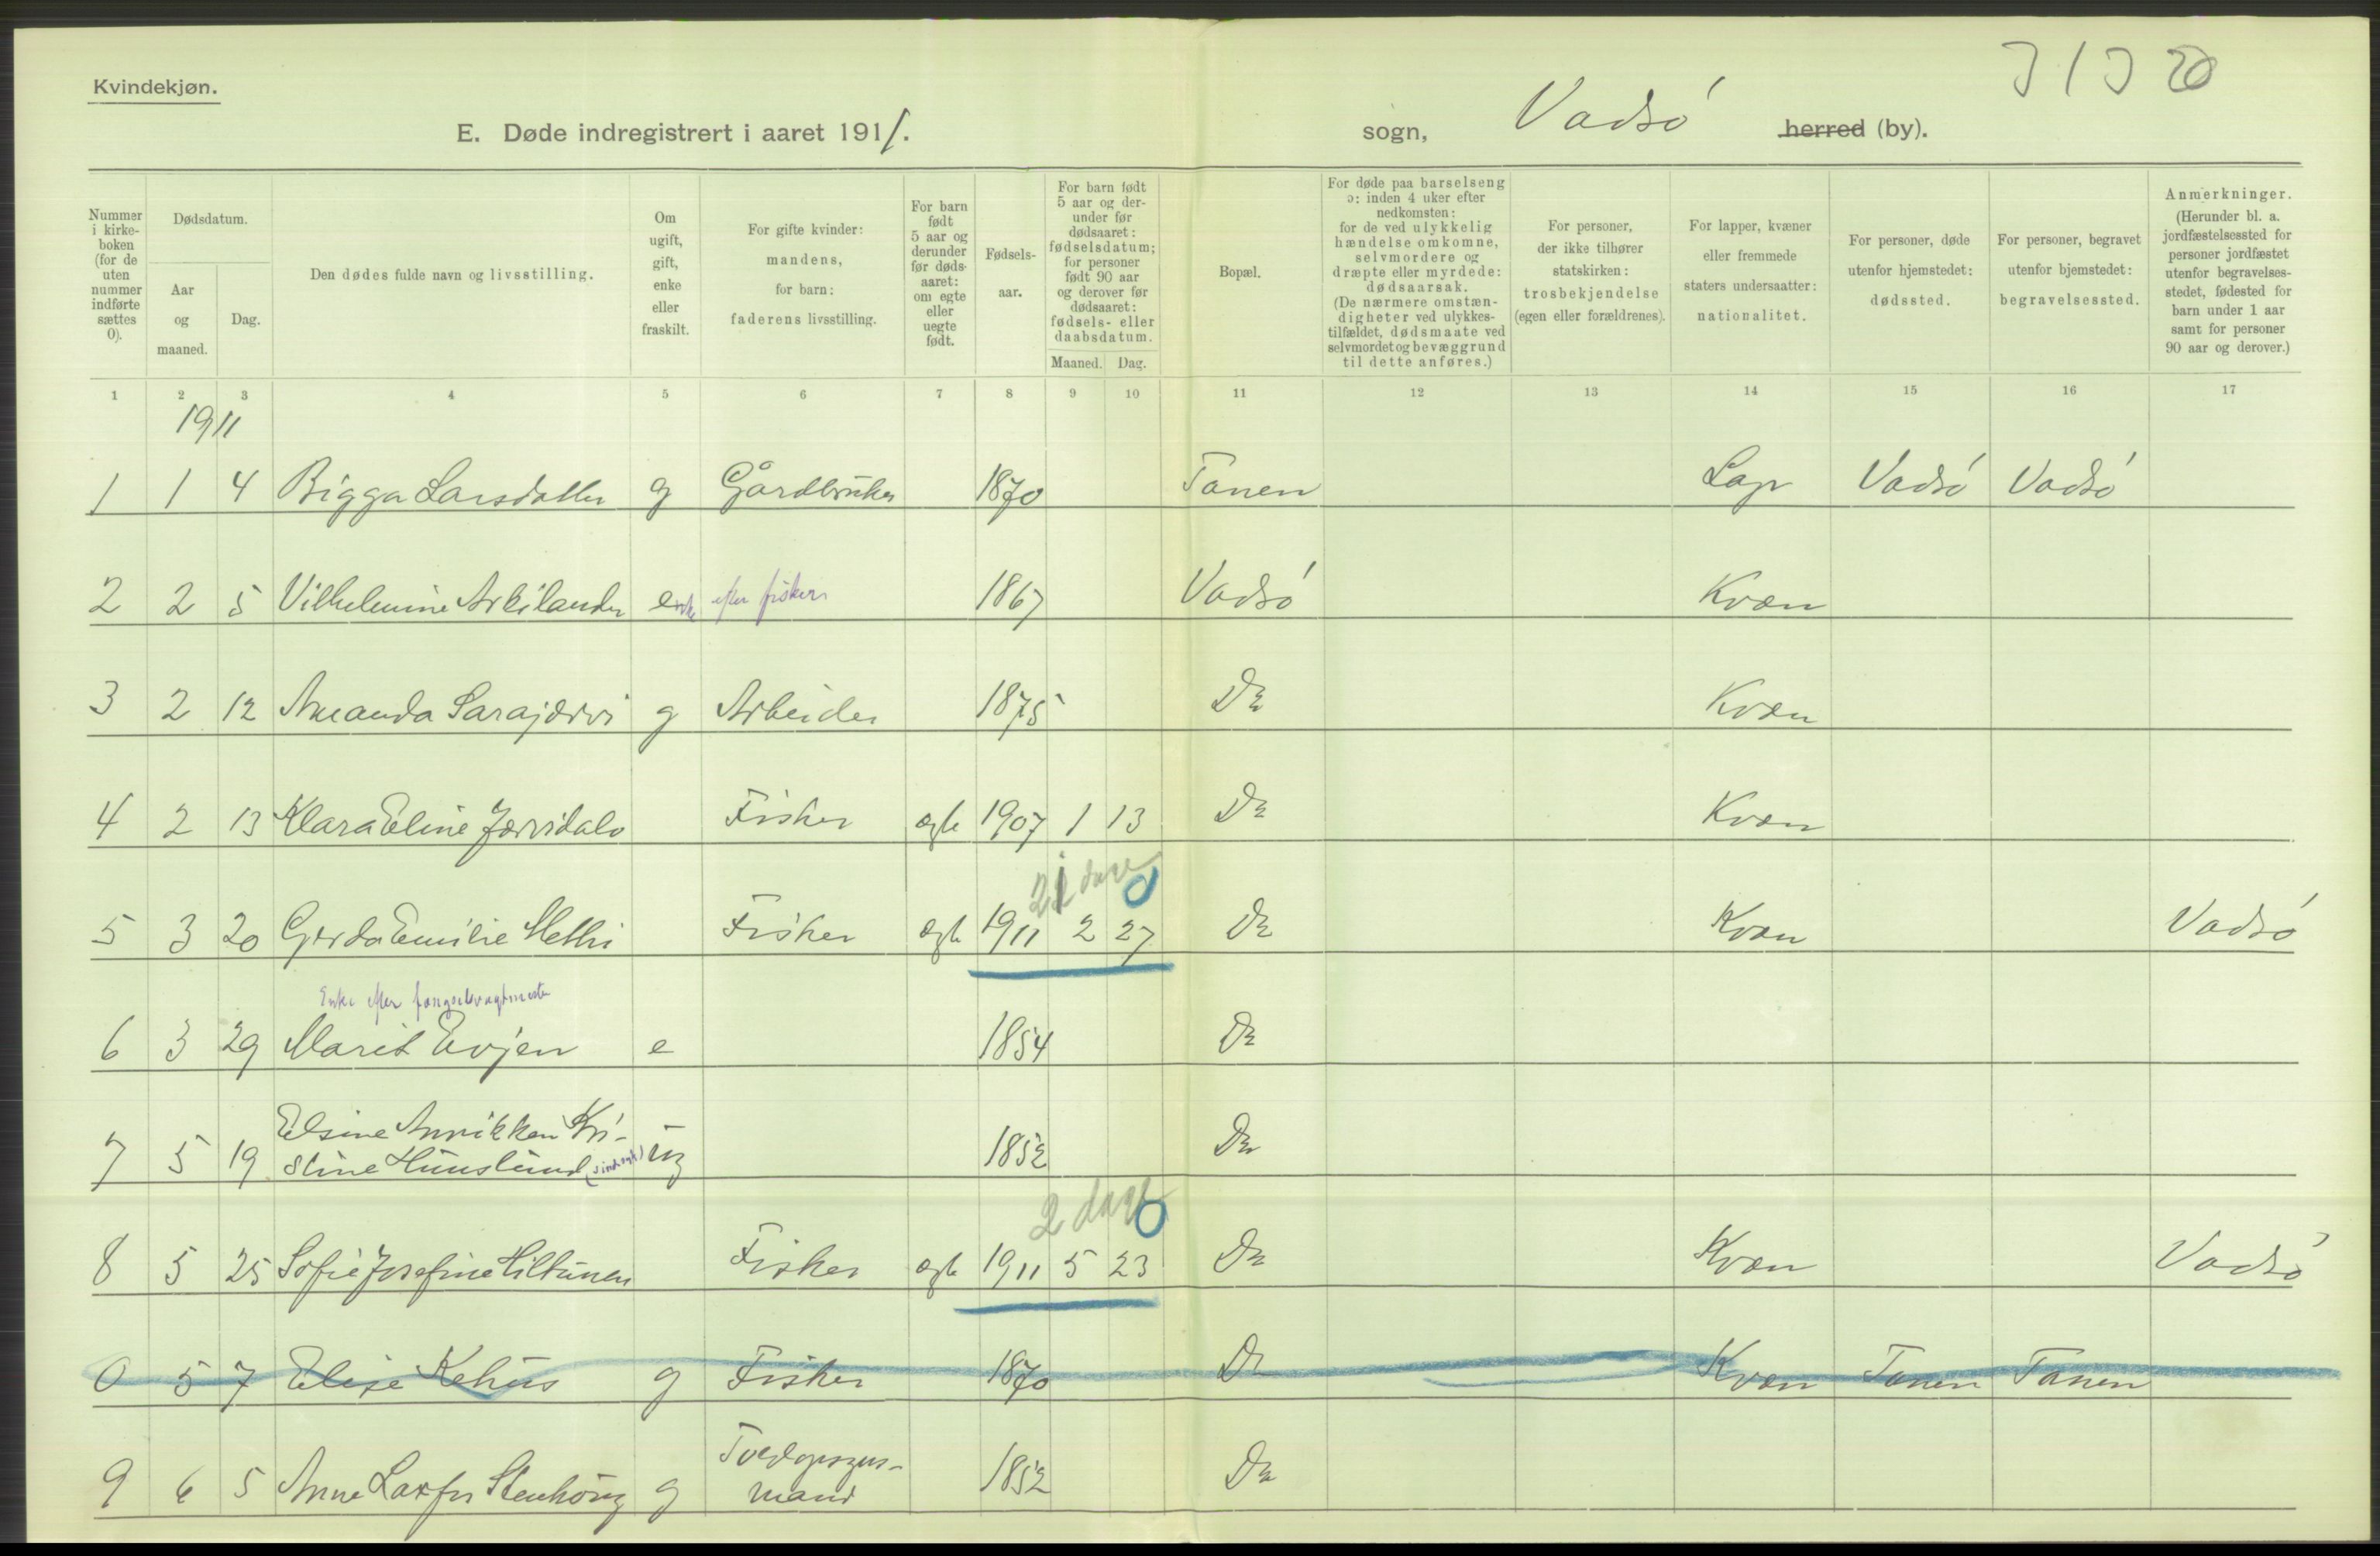 Kvindekjøn.
E. Døde indregistrert i aaret 1911.
sogn, Vadsö herred (by).
Nummer i kirke-boken (for de uten nummer indførte sættes 0).
Dødsdatum.
Aar og maaned.
Dag.
Den dødes fulde navn og livsstilling.
Om ugift, gift, enke eller fraskilt.
For gifte kvinder: mandens, for barn: faderens livsstilling.
For barn født 5 aar og derunder før døds-aaret: om egte eller uegte født.
Fødsels-aar.
For barn født 5 aar og der-under før dødsaaret: fødselsdatum; for personer født 90 aar og derover før dødsaaret: fødsels- eller daabsdatum.
Maaned. Dag.
Bopæl.
For døde paa barselseng ɔ: inden 4 uker efter nedkomsten: for de ved ulykkelig hændelse omkomne, selvmordere og dræpte eller myrdede: dødsaarsak. (De nærmere omstæn-digheter ved ulykkes-tilfældet, dødsmaate ved selvmordet og bevæggrund til dette anføres.)
For personer, der ikke tilhører statskirken: trosbekjendelse (egen eller forældrenes).
For lapper, kvæner eller fremmede staters undersaatter: nationalitet.
For personer, døde utenfor hjemstedet: dødssted.
For personer, begravet utenfor hjemstedet: begravelsessted.
Anmerkninger. (Herunder bl. a. jordfæstelsessted for personer jordfæstet utenfor begravelses-stedet, fødested for barn under 1 aar samt for personer 90 aar og derover.)
1 2 3 4 5 6 7 8 9 10 11 12 13 14 15 16 17
1911
1 1 4 Bigga Larsdatter g Gårdbruker 1870 Tanen Lap Vadsö Vadsö
2 2 5 Vilhelmine Arkilander enke efter fisker 1867 Vadsö Kvæn
3 2 12 Amanda Sarajærvi g Arbeider 1875 Do Kvæn
4 2 13 Klara Eline Jærvidalo Fisker ægte 1907 1 13 Do Kvæn
21 dage 0
5 3 20 Gerda Emilie Methi Fisker ægte 1911 2 27 Do Kvæn Vadsö
Enke efter fængselsvagtmester
6 3 29 Marit Evjen e 1854 Do
Elsine Annikken Kri-
7 5 19 stine Huuslund (sindssyk) ug 1852 Do
2 dage 0
8 5 25 Sofie Josefine Hiltunen Fisker ægte 1911 5 23 Do Kvæn Vadsö
0 5 7 Elise Kehus g Fisker 1870 Do Kvæn Tanen Tanen
Toldopsyns-
9 6 5 Anne Stenhöug g mand 1852 Do